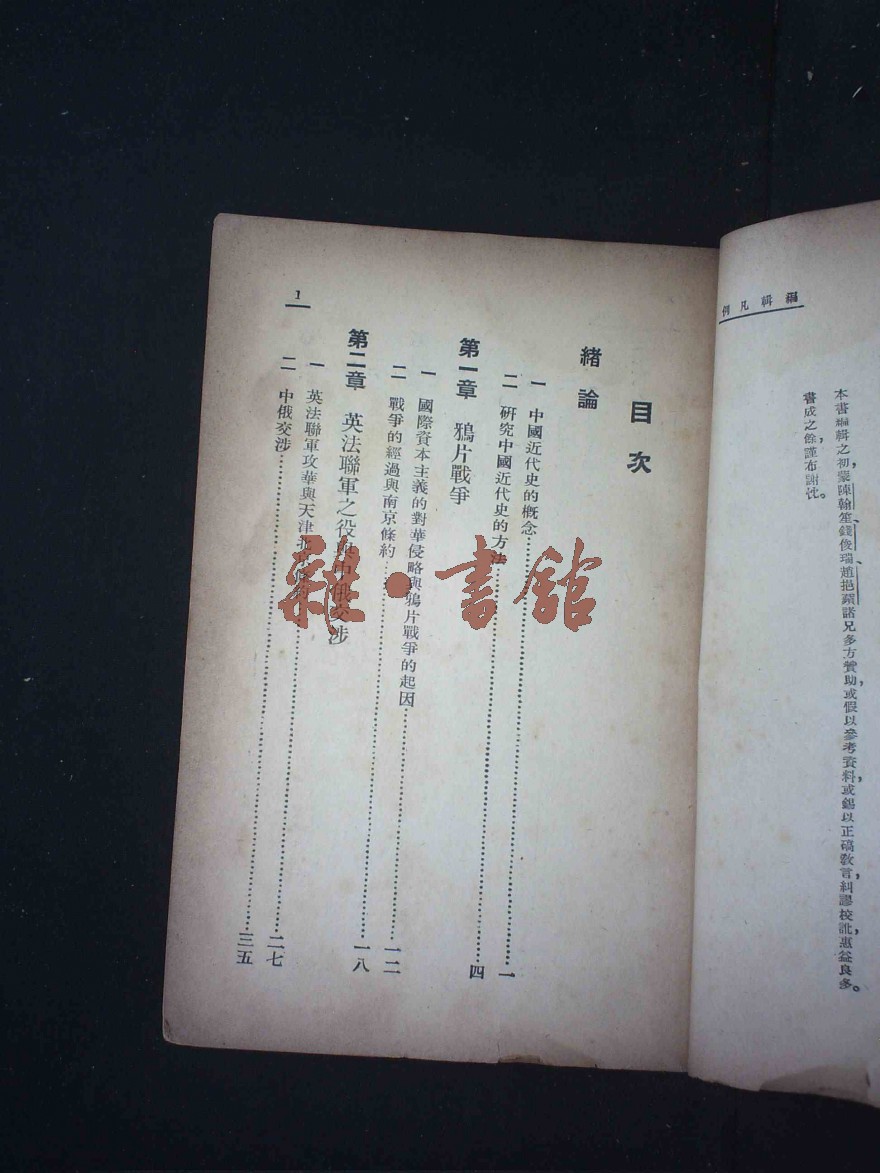 編輯凡例
本書編輯之初，蒙陳翰笙、錢俊瑞、趙挹蘋諸兄多方贊助，或假以參考資料，或錫以正碻教言，糾謬校訛，惠益良多。
書成之餘，謹布謝忱。
目次
緒論
一 中國近代史的概念……一
二 研究中國近代史的方法……四
第一章 鴉片戰爭
一 國際資本主義的對華侵略與鴉片戰爭的起因……一二
二 戰爭的經過與南京條約……一八
第二章 英法聯軍之役與中俄交涉
一 英法聯軍攻華與天津北京條約……二七
二 中俄交涉……三五
1
雜·書館